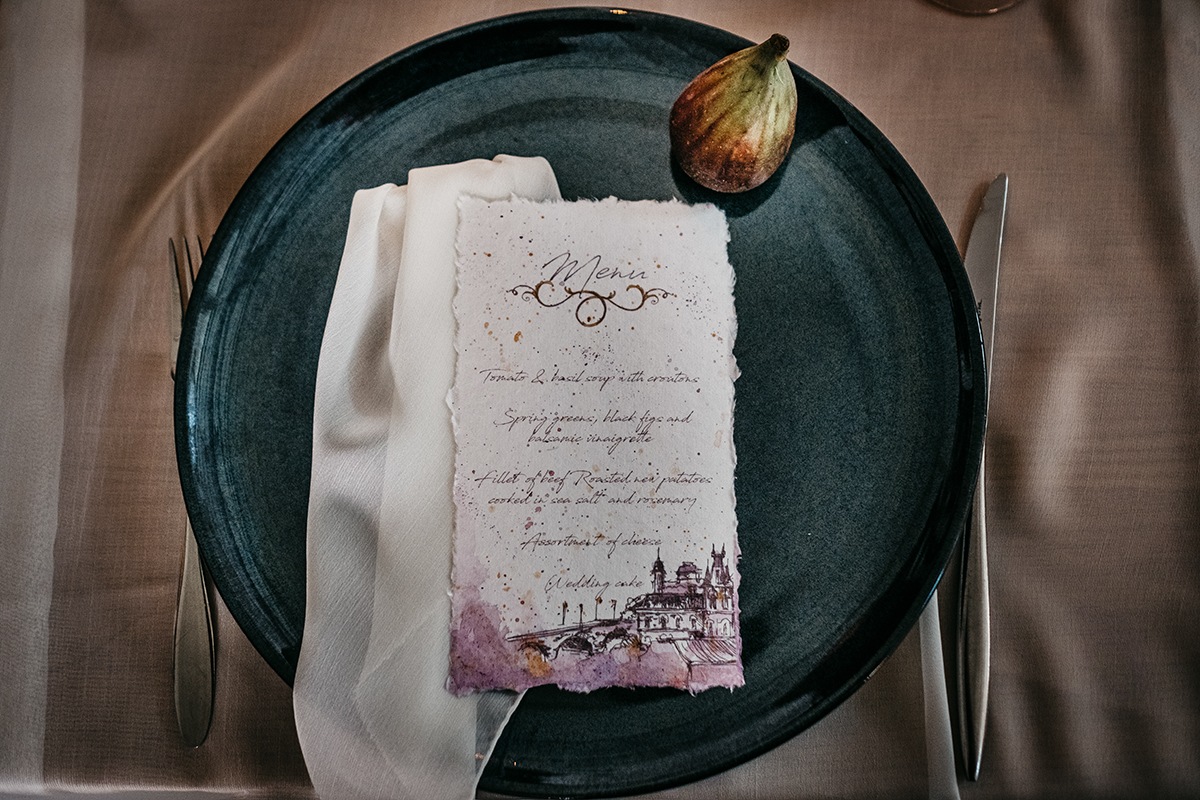 Menu
Tomato & basil soup with croutons
Spring greens, black figs and
balsamic vinaigrette
Fillet of beef Roasted new potatoes
cooked in sea salt and rosemary
Assortment of cheese
Wedding cake